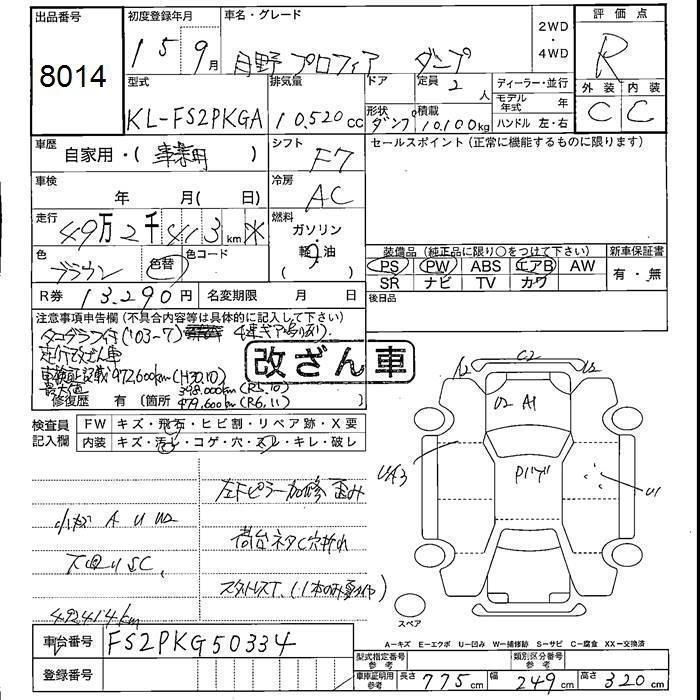 出品番号
8014
初度登録年月
15 9月
車名・グレード
日野 プロフィア ダンプ
2WD
・
4WD
評価点
R
外装 内装
C C
型式
KL-FS2PKGA
排気量
10,520cc
ドア
定員
2人
形状
ダンプ
積載
10,100kg
ディーラー・並行
モデル年式 年
ハンドル 左・右
車歴
自家用・(事業用)
シフト
F7
セールスポイント(正常に機能するものに限ります)
車検
年 月(日)
冷房
AC
走行
49万2千413km *
燃料
ガソリン
軽油
色
ブラウン
色替
色コード
装備品(純正品に限り○をつけて下さい)
新車保証書
PS PW ABS エアB AW
SR ナビ TV カワ
有・無
R券
13,290円
名変期限 月 日
後日品
注意事項申告欄(不具合内容等は具体的に記入して下さい)
タコグラフ付('03-7)
走行改ざん車
改ざん車
車検証記載 972,600km(H30.10)
最大値 398,000km(R5.10)
修復歴 有(箇所 479,600km(R6.11)
検査員記入欄
FW キズ・飛石・ヒビ割・リペア跡・X要
内装 キズ・汚レ・コゲ・穴・スレ・キレ・破レ
小キズ A U W2
左Fピラー加修 歪み
荷台
492,414km
スタッドレスT,
A2 C2 U2
U2 A1
Pバブ
UA3
U1
スペア
A=キズ E=エクボ U=凹み W=補修跡 S=サビ C=腐食 XX=交換済
車台番号
FS2PKG50334
登録番号
型式指定番号
参考
類別区分番号
参考
車庫証明用
参考
長さ 775cm 幅 249cm 高さ 320cm